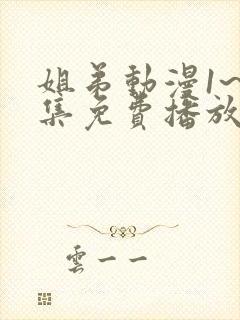 姐弟動漫1~
集免費播放
雲一一